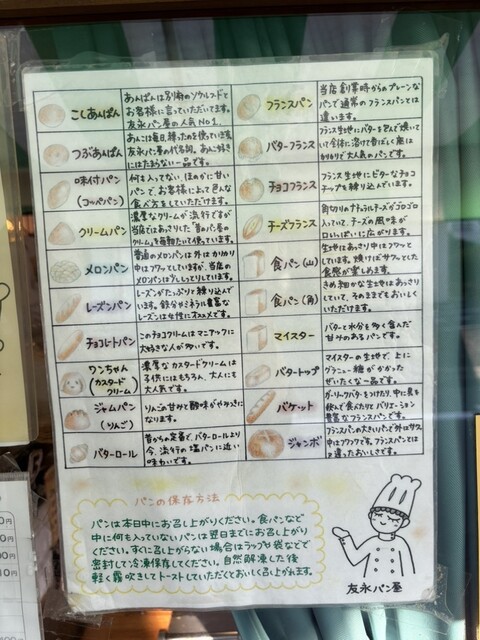 こしあんぱん
あんぱんは別府のソウルフードと
お客様に言っていただいてます。
友永パン屋の人気NO1.
つぶあんぱん
あんこは毎日、練ったのを使っています。
友永パン屋の代名詞。あん好き
にはたまらない一品です。
味付パン
(コッペパン)
何も入ってない、ほのかに甘い
パンで、お客様によって色んな
食べ方をしていただけます。
クリームパン
濃厚なクリームが流行ですが
当店ではあっさりした昔のパン屋の
クリームを毎朝たいて使っています。
メロンパン
普通のメロンパンは外はカリカリ
中はフワッとしていますが、当店の
メロンパンはしっとりしています。
レーズンパン
レーズンがたっぷりと練り込んで
います。鉄分ミネラル豊富な
レーズンは女性にオススメです。
チョコレートパン
このチョコクリームはマニアックに
大好きな人が多いです。
ワンちゃん
(カスタードクリーム)
濃厚なカスタードクリームは
子供にはもちろん、大人にも
大人気です。
ジャムパン
(りんご)
りんごの甘みと酸味がやみつきに
なります。
バターロール
昔からの定番で、バターロールより
今、流行の塩パンに近い
味わいです。
フランスパン
当店創業時からのプレーンな
パンで通常のフランスパンとは
違います。
バターフランス
フランス生地にバターを包んで焼いて
いて全体に溶け香ばしく底は
カリカリで大人気のパンです。
チョコフランス
フランス生地にビターなチョコ
チップを練り込んでいます。
チーズフランス
角切りのナチュラルチーズがゴロゴロ
入っていて、チーズの風味が
口いっぱいに広がります。
食パン(山)
生地はあっさり中はフワッと
しています。焼けばサクッとした
食感が楽しめます。
食パン(角)
きめ細かな生地はあっさり
していて、そのままでもおいしく
いただけます。
マイスター
バターと水分を多く含んだ
甘みのあるパンです。
バタートップ
マイスターの生地で、上に
グラニュー糖がかかった
ぜいたくな一品です。
バケット
ガーリックバターをつけたり、中に具を
挟んで食べたりとバリエーション
豊富なフランスパンです。
ジャンボ
フランスパンの大きいパンで外はサクッ
中はフワフワです。フランスパンとは
又違ったおいしさです。
パンの保存方法
パンは本日中にお召し上がりください。食パンなど
中に何も入っていないパンは翌日までにお召し上がり
ください。すぐに召し上がらない場合はラップや袋などで
密封して冷凍保存してください。自然解凍した後
軽く霧吹きしてトーストしていただくとおいしく召し上がれます。
友永パン屋